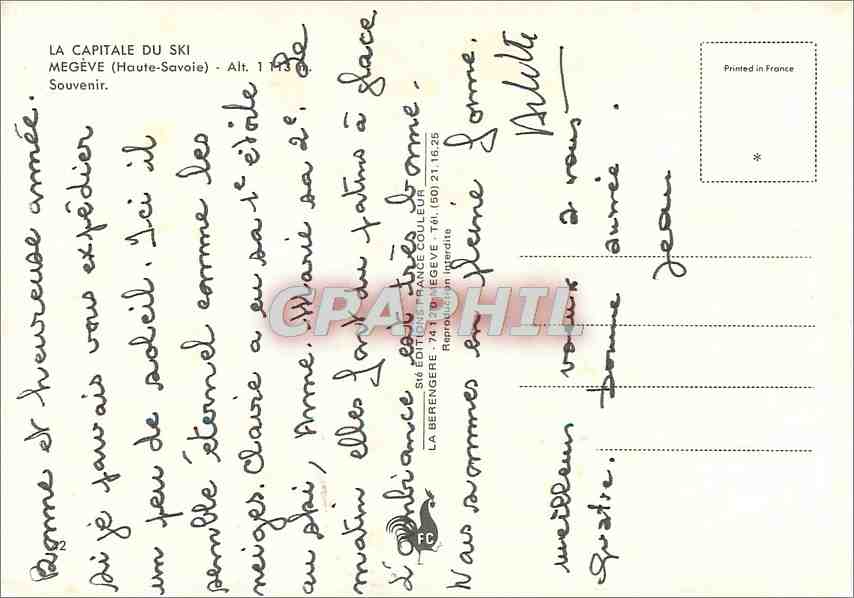 LA CAPITALE DU SKI
MEGÈVE (Haute-Savoie) - Alt. 1 113 m.
Souvenir.
Printed in France
*
Bonne et heureuse année.
Si je pavais vous expédier
un peu de soleil. Ici il
semble éternel comme les
neiges. Claire a eu sa 1e étoile
au ski, Anne. Marie sa 2e. Le
matin elles font du patins à glace
L'ambiance est très bonne.
Nous sommes en pleine forme.
Sté EDITIONS FRANCE COULEUR
LA BERENGERE - 74120 MEGEVE - Tél. (50) 21.16.25
Reproduction interdite
FC
meilleurs vœux à vous
quatre. bonne année.
Jean
CPAPHIL